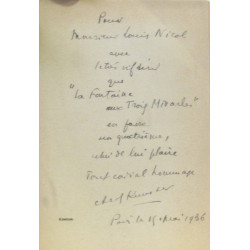 Pour
Monsieur Louis Nicol
avec
le très vif désir
que
"La Fontaine
aux Trois Miracles"
en fasse
de lui plaire
Tout cordial hommage
Paris le 15 Mai 1936